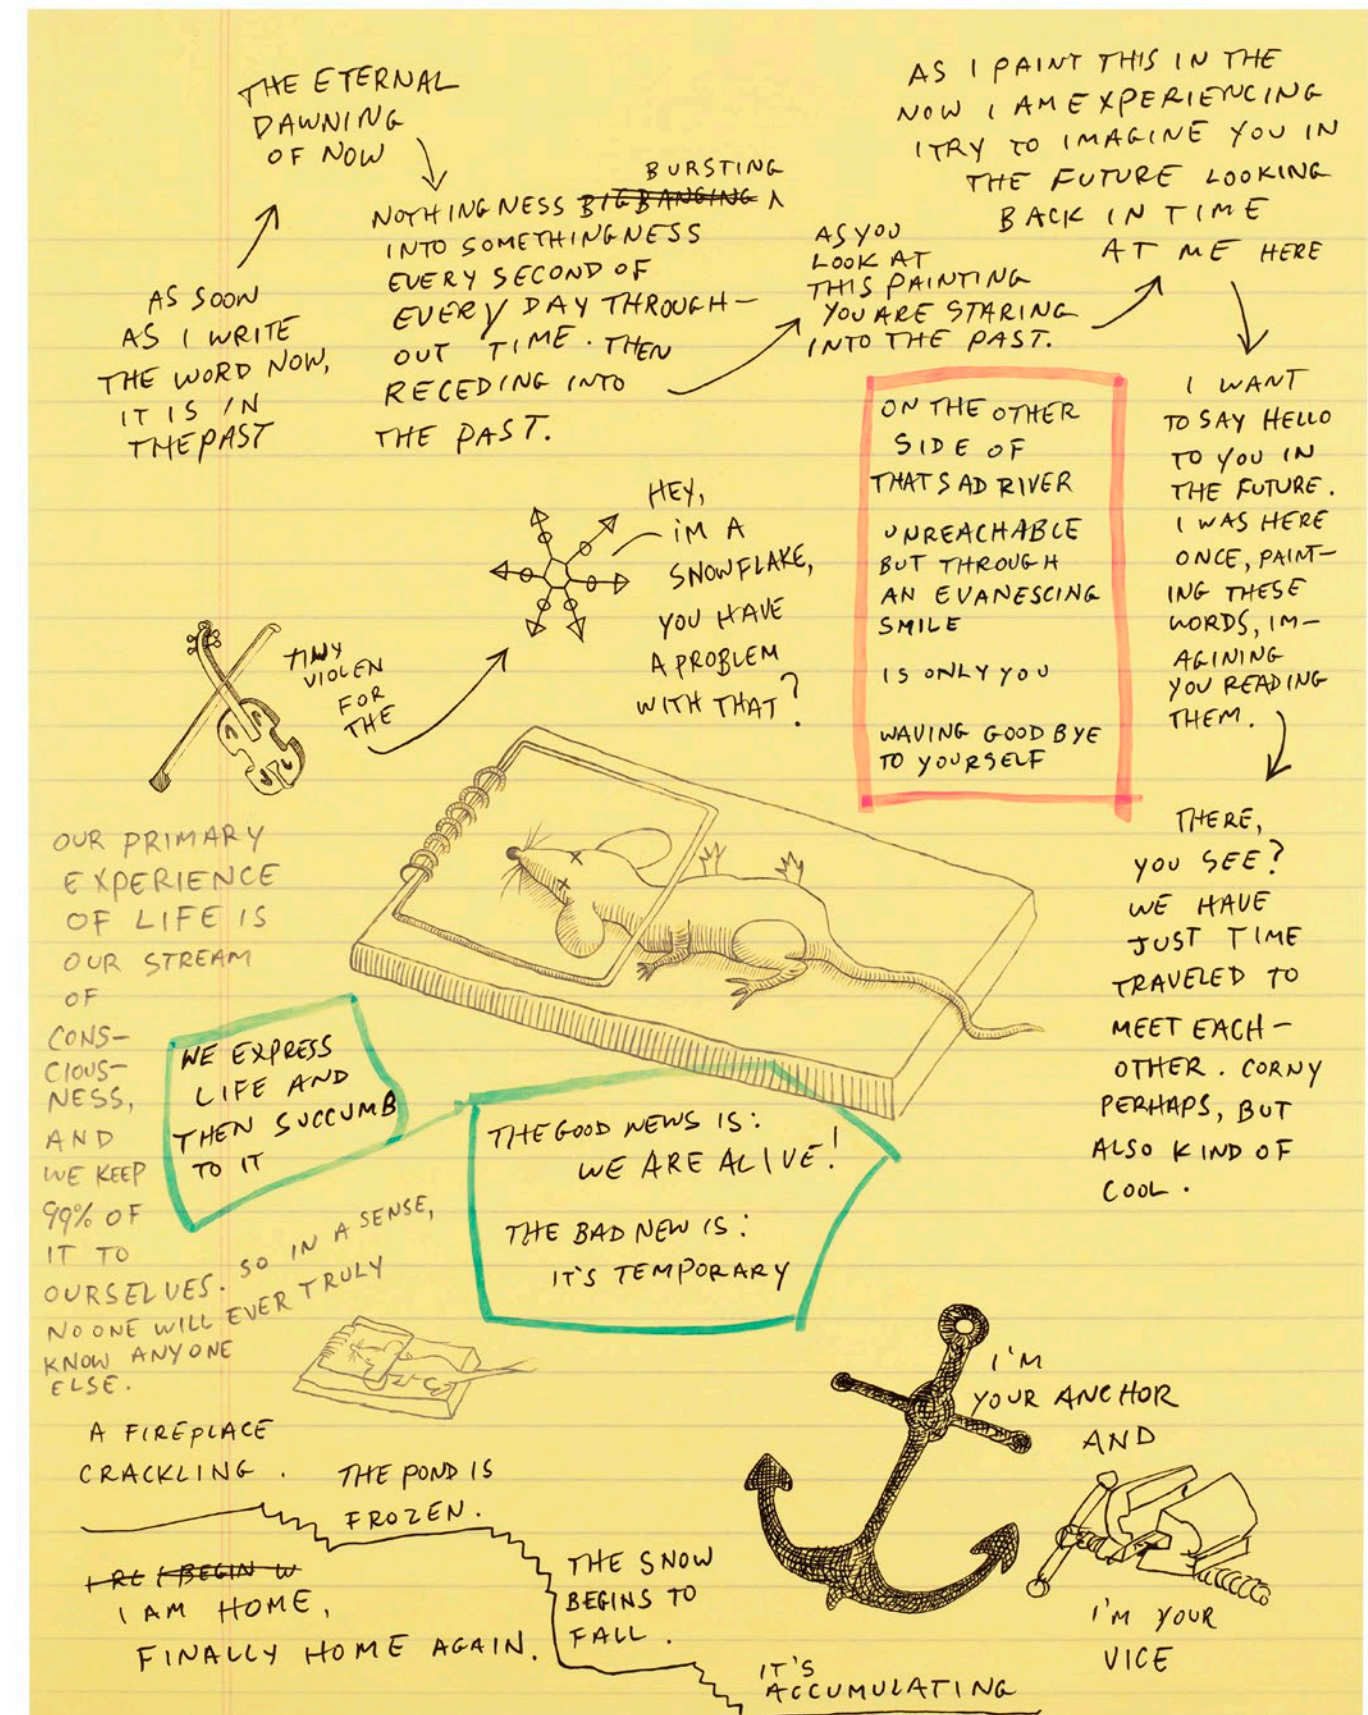 AS SOON
AS I WRITE
THE WORD NOW,
IT IS IN
THE PAST
THE ETERNAL
DAWNING
OF NOW
BURSTING
NOTHINGNESS BIGBANGING
INTO SOMETHINGNESS
EVERY SECOND OF
EVERY DAY THROUGH-
OUT TIME. THEN
RECEDING INTO
THE PAST.
AS YOU
LOOK AT
THIS PAINTING
YOU ARE STARING
INTO THE PAST.
AS I PAINT THIS IN THE
NOW I AM EXPERIENCING
I TRY TO IMAGINE YOU IN
THE FUTURE LOOKING
BACK IN TIME
AT ME HERE
I WANT
TO SAY HELLO
TO YOU IN
THE FUTURE.
I WAS HERE
ONCE, PAINT-
ING THESE
WORDS, IM-
AGINING
YOU READING
THEM.
THERE,
YOU SEE?
WE HAVE
JUST TIME
TRAVELED TO
MEET EACH-
OTHER. CORNY
PERHAPS, BUT
ALSO KIND OF
COOL.
ON THE OTHER
SIDE OF
THAT SAD RIVER
UNREACHABLE
BUT THROUGH
AN EVANESCING
SMILE
IS ONLY YOU
WAVING GOODBYE
TO YOURSELF
TINY
VIOLEN
FOR
THE
HEY,
I'M A
SNOWFLAKE,
YOU HAVE
A PROBLEM
WITH THAT?
OUR PRIMARY
EXPERIENCE
OF LIFE IS
OUR STREAM
OF
CONS-
CIOUS-
NESS,
AND
WE KEEP
99% OF
IT TO
OURSELVES. SO IN A SENSE,
NO ONE WILL EVER TRULY
KNOW ANYONE
ELSE.
WE EXPRESS
LIFE AND
THEN SUCCUMB
TO IT
THE GOOD NEWS IS:
WE ARE ALIVE!
THE BAD NEW IS:
IT'S TEMPORARY
A FIREPLACE
CRACKLING.
THE POND IS
FROZEN.
I RE I BEGIN W
I AM HOME,
FINALLY HOME AGAIN.
THE SNOW
BEGINS TO
FALL.
IT'S
ACCUMULATING
I'M
YOUR ANCHOR
AND
I'M YOUR
VICE